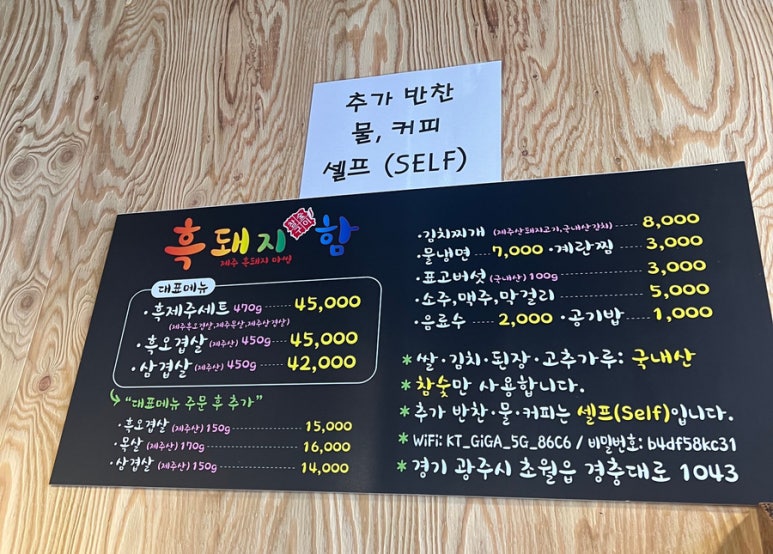 추가 반찬
물, 커피
셀프 (SELF)
흑돼지함
제주 흑돼지 마씸
대표메뉴
·흑제주세트 470g 45,000
(제주흑오겹살,제주목살,제주삼겹살)
·흑오겹살 (제주산) 450g 45,000
·삼겹살 (제주산) 450g 42,000
"대표메뉴 주문 후 추가"
·흑오겹살 (제주산) 150g 15,000
·목살 (제주산) 170g 16,000
·삼겹살 (제주산) 150g 14,000
·김치찌개 (제주산돼지고기,국내산김치) 8,000
·물냉면 7,000 ·계란찜 3,000
·표고버섯 (국내산) 100g 3,000
·소주,맥주,막걸리 5,000
·음료수 2,000 ·공기밥 1,000
* 쌀·김치·된장·고추가루: 국내산
* 참숯만 사용합니다.
* 추가 반찬·물·커피는 셀프(Self)입니다.
* WiFi: KT_GiGA_5G_86C6 / 비밀번호: b4df58kc31
* 경기 광주시 초월읍 경충대로 1043